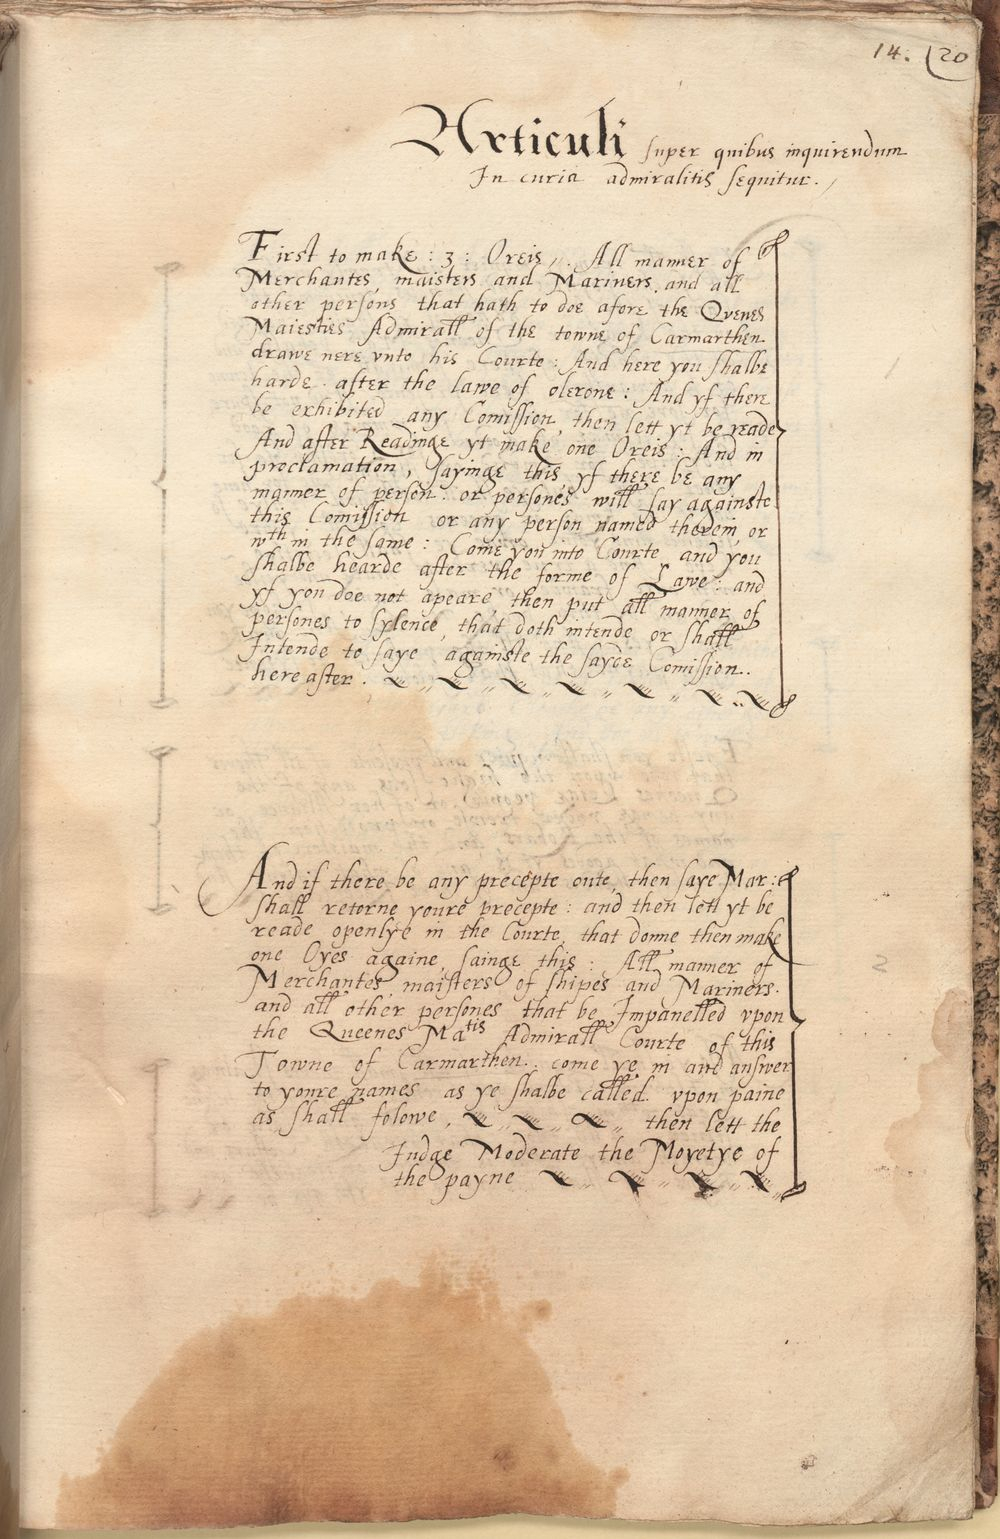 14. (20
Articuli super quibus inquirendum
In curia admiralitis sequitur.
First to make : 3 : Oreis,. All manner of
Merchantes, maisters and Mariners, and all
other persons that hath to doe afore the Quenes
Maiesties Admirall of the towne of Carmarthen
drawe nere vnto his Courte : And here you shalbe
harde after the lawe of olerone : And yf there
be exhibited any Comission, then lett yt be reade
And after Readinge yt make one Oreis : And in
proclamation, sayinge this, yf there be any
manner of person or persones will say againste
this Comission or any person named therein, or
wth in the same : Come you into Courte, and you
shalbe hearde after the forme of Lawe : and
yf you doe not apeare, then put all manner of
persones to sylence, that doth intende or shall
Intende to saye againste the sayde Comission..
here after.
And if there be any precepte oute, then saye Mar:
shall retorne youre precepte : and then lett yt be
reade openlye in the Courte, that donne then make
one Oyes againe, sainge this : All manner of
Merchantes, maisters of shipes and Mariners.
and all other persones that be Impanelled vpon
the Queenes Matis Admirall Courte of this
Towne of Carmarthen. come ye in and answer
to youre names as ye shalbe called. vpon paine
as shall folowe, then lett the
Judge Moderate the Moyetye of
the payne
1
2